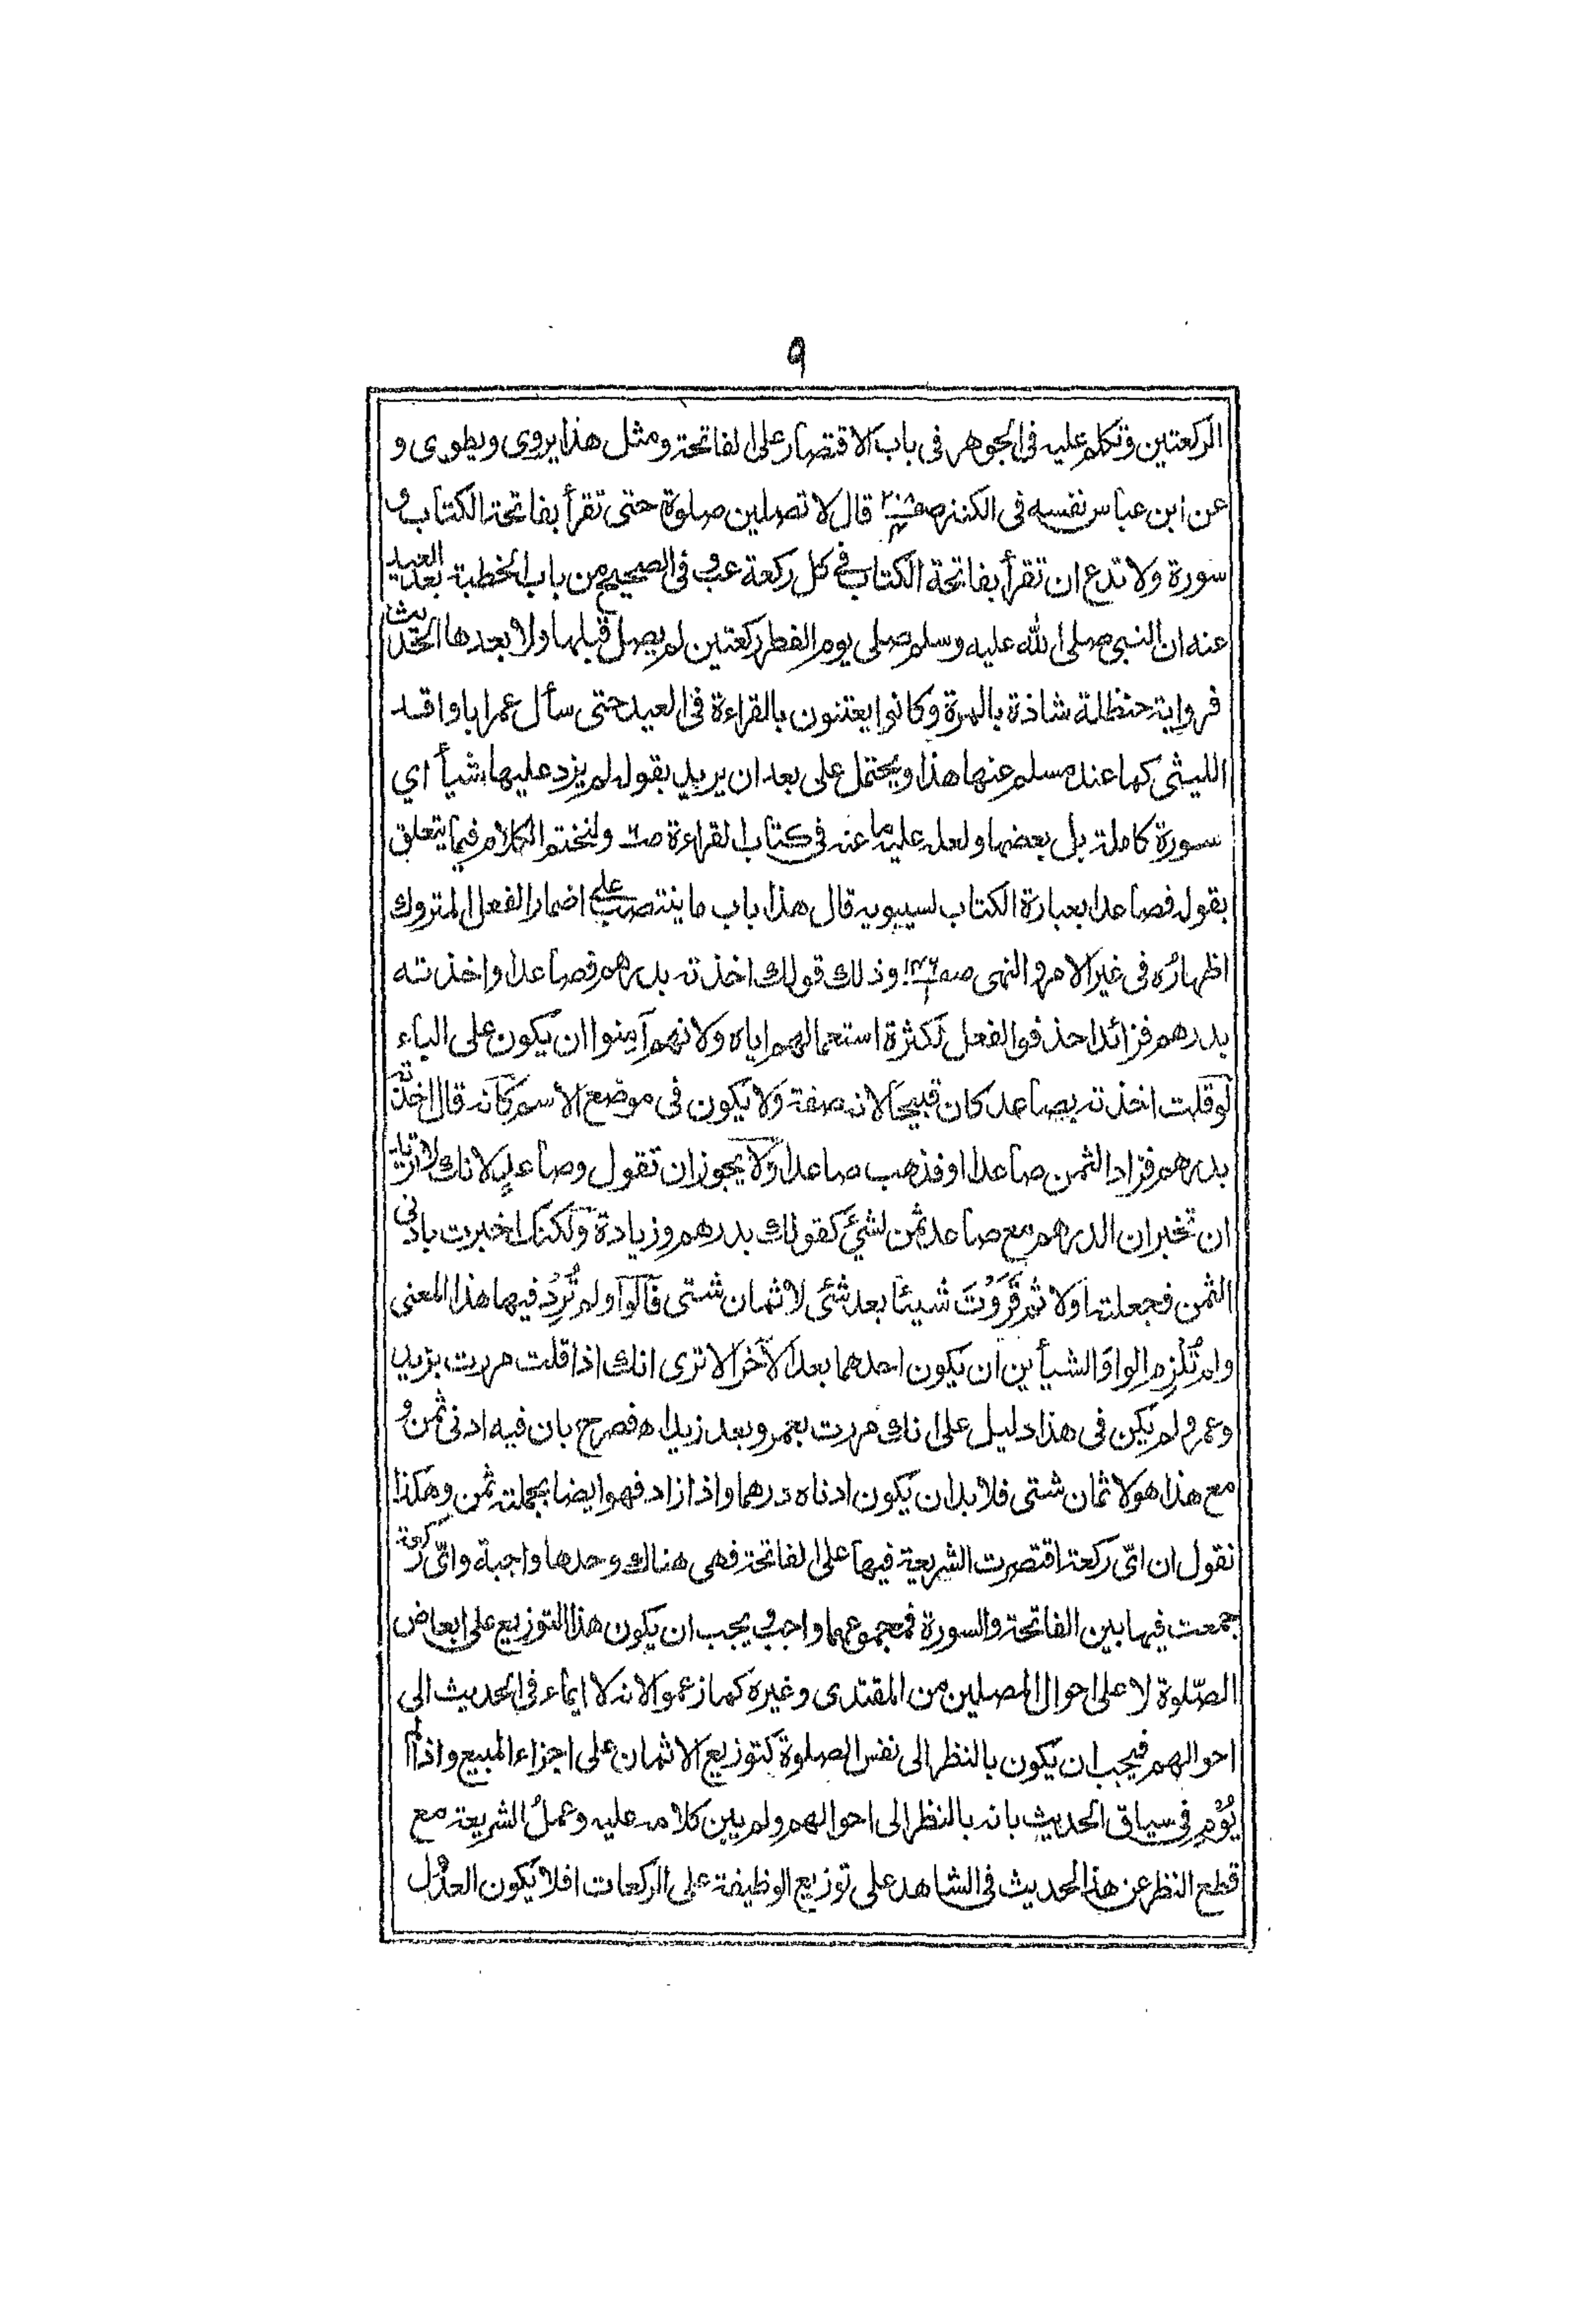 ٩
الركعتين وتكلم عليه فى الجوهر فى باب الاقتصار على الفاتحة ومثل هذا يروى ويطوى و
عن ابن عباس نفسه فى الكنز صفـ قال لا تصلين صلوة حتى تقرأ بفاتحة الكتاب و
سورة ولا تدع ان تقرأ بفاتحة الكتاب فى كل ركعة عب و فى الصحيح من باب الخطبة بعد العيد
عنه ان النبى صلى الله عليه وسلم صلى يوم الفطر ركعتين لم يصل قبلها ولا بعدها الحديث
فرواية حنظلة شاذة بالمرة وكانوا يعتنون بالقراءة فى العيد حتى سأل عمر ابا واقد
الليثى كما عند مسلم عنها هذا ويحتمل على بعد ان يريد بقوله لم يزد عليها شيأ اي
سورة كاملة بل بعضها ولعل عليه ما عنه فى كتاب القراءة ولنختم الكلام فيما يتعلق
بقوله فصاعدا بعبارة الكتاب لسيبويه قال هذا باب ما ينتصب على اضمار الفعل المتروك
اظهارُه فى غير الامر والنهى صفـ ١٤٦/١ وذلك قولك اخذته بدرهم فصاعدا واخذته
بدرهم فزائدا حذفوا الفعل لكثرة استعمالهم اياه ولانهم آمِنوا ان يكون على الباء
لو قلت اخذته بصاعد كان قبيحا لانه صفة ولا يكون فى موضع الاسم كانه قال اخذته
بدرهم فزاد الثمن صاعدا او فذهب صاعدا ولا يجوز ان تقول وصاعدٍ لانك لا تريد
ان تخبر ان الدرهم مع صاعد ثمن لشئ كقولك بدرهم وزيادة ولكنك اخبرت بادنى
الثمن فجعلته اولا ثم قَرَوْتَ شيئا بعد شئ لاثمان شتى فالواو لم تُرِدْ فيها هذا المعنى
ولم تُلْزِم الواوُ الشيأين ان يكون احدهما بعد الآخر الا ترى انك اذا قلت مررت بزيد
وعمرو لم يكن فى هذا دليل على انك مررت بعمرو بعد زيد اه فصرح بان فيه ادنى ثمن و
مع هذا هو لاثمان شتى فلا بد ان يكون ادناه درهما واذا زاد فهو ايضا بجملته ثمن وهكذا
نقول ان اىّ ركعة اقتصرت الشريعة فيها على الفاتحة فهى هناك وحدها واجبة واىّ ركعة
جمعت فيها بين الفاتحة والسورة فمجموعهما واجب و يجب ان يكون هذا التوزيع على ابعاض
الصّلوة لا على احوال المصلين من المقتدى وغيره كما زعموا لانه لا ايماء فى الحديث الى
احوالهم فيجب ان يكون بالنظر الى نفس الصلوة كتوزيع الاثمان على اجزاء المبيع واذا لم
يُوْمِ فى سياق الحديث بانه بالنظر الى احوالهم ولم يبن كلامه عليه وعملُ الشريعة مع
قطع النظر عن هذا الحديث فى الشاهد على توزيع الوظيفة على الركعات افلا يكون العدول